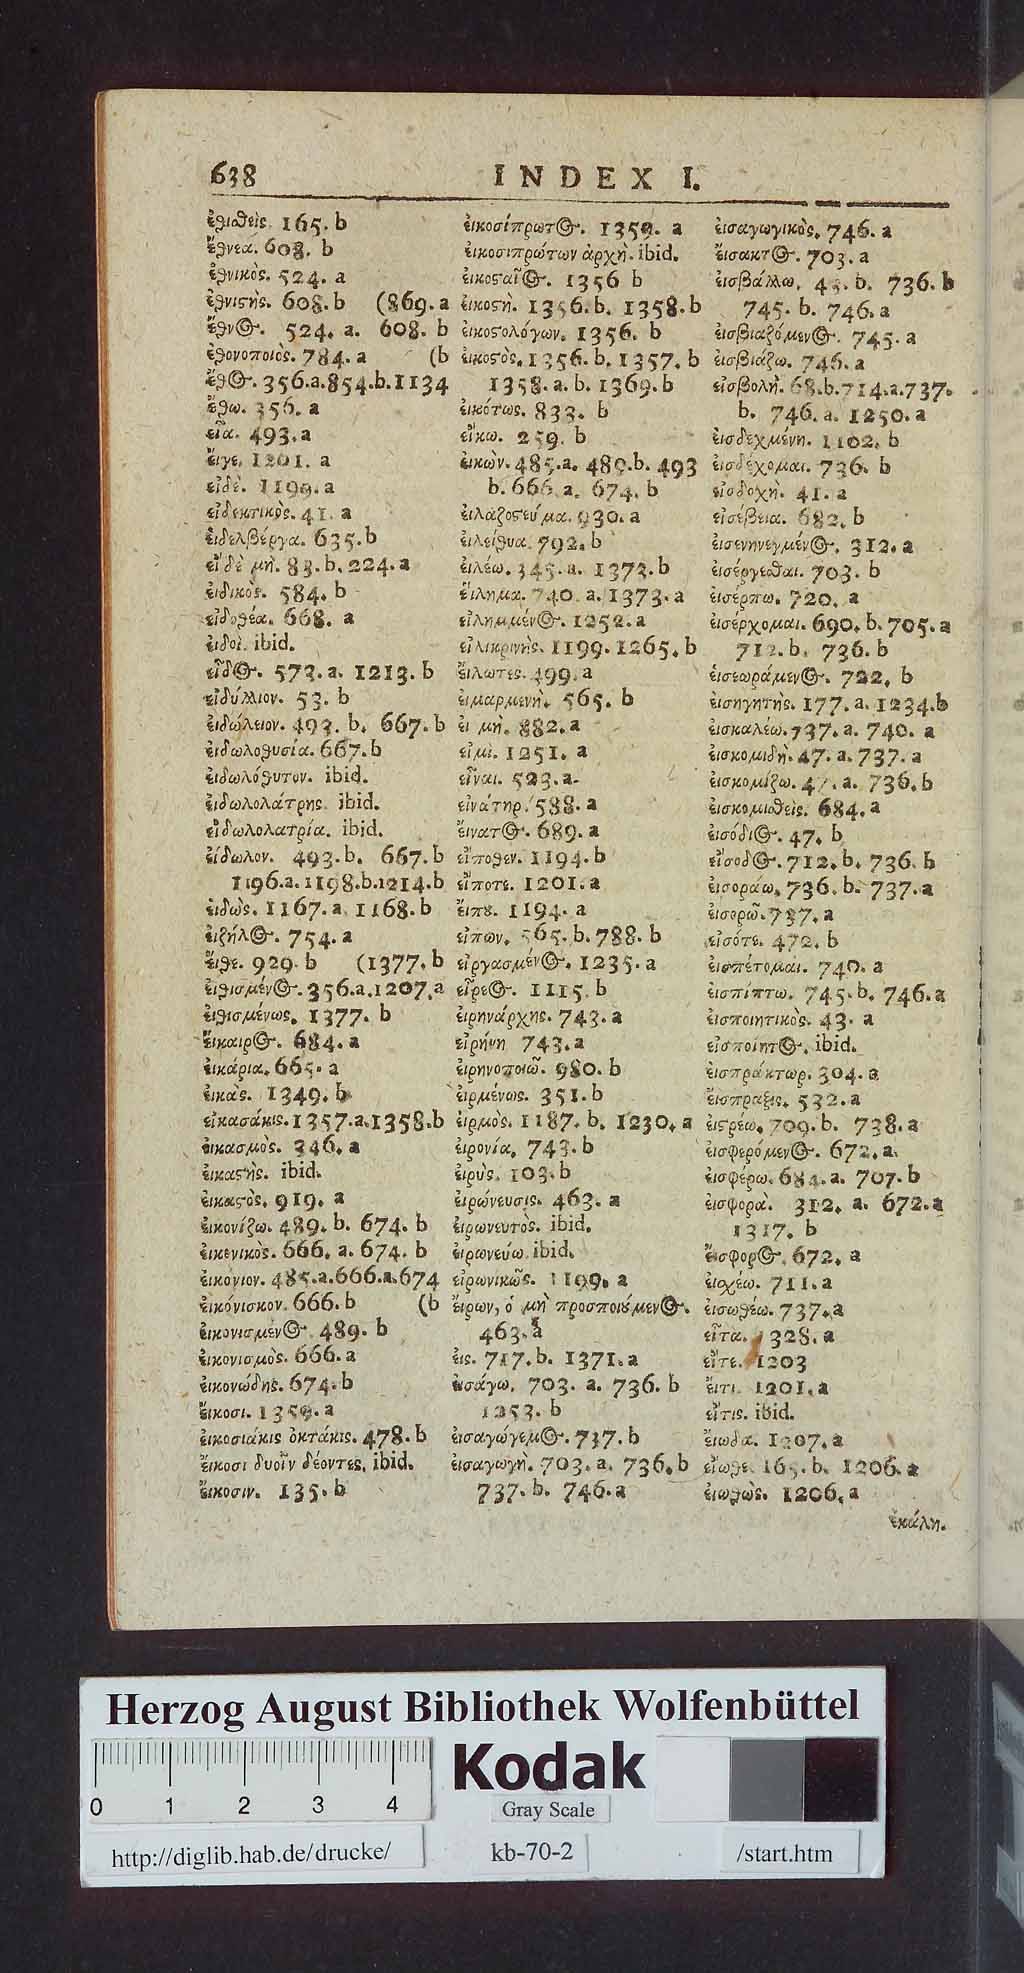 638 INDEX I.
ἐθισθεὶς. 165. b
ἔθνεα. 608. b
ἐθνικὸς. 524. a
ἐθνιϛὴς. 608. b (869. a
ἔθνος. 524. a. 608. b
ἐθονοποιὸς. 784. a (b
ἔθος. 356. a. 854. b. 1134
ἔθω. 356. a
εἶα. 493. a
εἴγε. 1201. a
εἰδὲ. 1199. a
εἰδεκτικὸς. 41. a
ἐιδελβέργα. 635. b
εἰ δὲ μή. 83. b. 224. a
ἐιδικὸς. 584. b
εἰδοθέα. 668. a
ἐιδοὶ. ibid.
εἶδος. 573. a. 1213. b
εἰδύλλιον. 53. b
ἐιδώλειον. 493. b. 667. b
ἐιδωλοθυσία. 667. b
ἐιδωλόθυτον. ibid.
ἐιδωλολάτρης. ibid.
εἰδωλολατρία. ibid.
ἐίδωλον. 493. b. 667. b
1196. a. 1198. b. 1214. b
ἐιδὼς. 1167. a. 1168. b
ἐιζήλος. 754. a
εἴθε. 929. b (1377. b
ἐιθισμένος. 356. a. 1207. a
ἐιθισμένως. 1377. b
ἔικαιρος. 684. a
ἐικάρια. 665. a
ἐικὰς. 1349. b
εἰκασάκις. 1357. a. 1358. b
ἐικασμὸς. 346. a
ἐικαϛὴς. ibid.
ἐικαϛὸς. 919. a
ἐικονίζω. 489. b. 674. b
ἐικονικὸς. 666. a. 674. b
ἐικόνιον. 485. a. 666. a. 674
ἐικόνισκον. 666. b (b
ἐικονισμένος. 489. b
ἐικονισμὸς. 666. a
ἐικονώδης. 674. b
ἔικοσι. 1359. a
ἐικοσιάκις ὀκτάκις. 478. b
ἔικοσι δυοῖν δέοντες. ibid.
ἔικοσιν. 135. b
ἐικοσίπρωτος. 1359. a
ἐικοσιπρώτων ἀρχὴ. ibid.
ἐικοϛαῖος. 1356 b
ἐικοϛὴ. 1356. b. 1358. b
ἐικοϛολόγων. 1356. b
ἐικοϛὸς. 1356. b. 1357. b
1358. a. b. 1369. b
ἐικότως. 833. b
εἴκω. 259. b
ἐικὼν. 485. a. 489. b. 493
b. 666. a. 674. b
ἐιλαζοϛεύμα. 930. a
ἐιλείθυα. 792. b
ἐιλέω. 345. a. 1373. b
ἕιλημα. 740. a. 1373. a
εἰλημμένος. 1252. a
εἰλικρινὴς. 1199. 1265. b
ἕιλωτες. 499. a
ἐιμαρμενὴ. 565. b
ἐι μὴ. 882. a
εἰμὶ. 1251. a
εἶναι. 523. a.
εἰνάτηρ. 588. a
ἔινατος. 689. a
εἴποθεν. 1194. b
εἴποτε. 1201. a
ἔιπȣ. 1194. a
εἰπων. 565. b. 788. b
εἰργασμένος. 1235. a
εἶρεος. 1115. b
ἐιρηνάρχης. 743. a
εἰρήνη 743. a
ἐιρηνοποιῶ. 980. b
ἐιρμένως. 351. b
ἐιρμὸς. 1187. b. 1230. a
ἐιρονία. 743. b
ἐιρὺς. 103. b
ἐιρώνευσις. 463. a
ἐιρωνευτὸς. ibid.
ἐιρωνεύω. ibid.
εἰρωνικῶς. 1199. a
ἔιρων, ὁ μὴ προσποιȣ́μενος.
463. a
ἐις. 717. b. 1371. a
ἐισάγω. 703. a. 736. b
1253. b
ἐισαγώγεμος. 737. b
ἐισαγωγὴ. 703. a. 736. b
737. b. 746. a
ἐισαγωγικὸς. 746. a
ἔισακτος. 703. a
ἐισβάλλω. 43. b. 736. b
745. b. 746. a
ἐισβιαζόμενος. 745. a
ἐισβιάζω. 746. a
εἰσβολὴ. 68. b. 714. a. 737.
b. 746. a. 1250. a
ἐισδεχμένη. 1102. b
ἐισδέχομαι. 736. b
εἰσδοχὴ. 41. a
εἰσέβεια. 682. b
ἐισενηνεγμένος. 312. a
ἐισέργεσθαι. 703. b
ἐισέρπω. 720. a
ἐισέρχομαι. 690. b. 705. a
712. b. 736. b
ἐισεωράμενος. 722. b
ἐισηγητὴς. 177. a. 1234. b
ἐισκαλέω. 737. a. 740. a
ἐισκομιδὴ. 47. a. 737. a
ἐισκομίζω. 47. a. 736. b
ἐισκομισθεὶς. 684. a
ἐισόδιος. 47. b
εἴσοδος. 712. b. 736. b
ἐισοράω. 736. b. 737. a
ἐισορῶ. 737. a
εἰσότε. 472. b
ἐισπέτομαι. 740. a
ἐισπίπτω. 745. b. 746. a
ἐισποιητικὸς. 43. a
εἰσποίητος. ibid.
ἐισπράκτωρ. 304. a
ἔισπραξις. 532. a
ἐισρέω. 709. b. 738. a
ἐισφερόμενος. 672. a.
ἐισφέρω. 684. a. 707. b
ἐισφορὰ. 312. a. 672. a
1317. b
ἔισφορος. 672. a
ἐισχέω. 711. a
ἐισωθέω. 737. a
εἶτα. 1328. a
εἴτε. 1203
ἔιτι. 1201. a
εἴτις. ibid.
ἔιωδα. 1207. a
εἴωθε. 165. b. 1206. a
ἐιωθὼς. 1206. a
ἐκάλη.
Herzog August Bibliothek Wolfenbüttel
0 1 2 3 4
Kodak
Gray Scale
http://diglib.hab.de/drucke/ kb-70-2 /start.htm